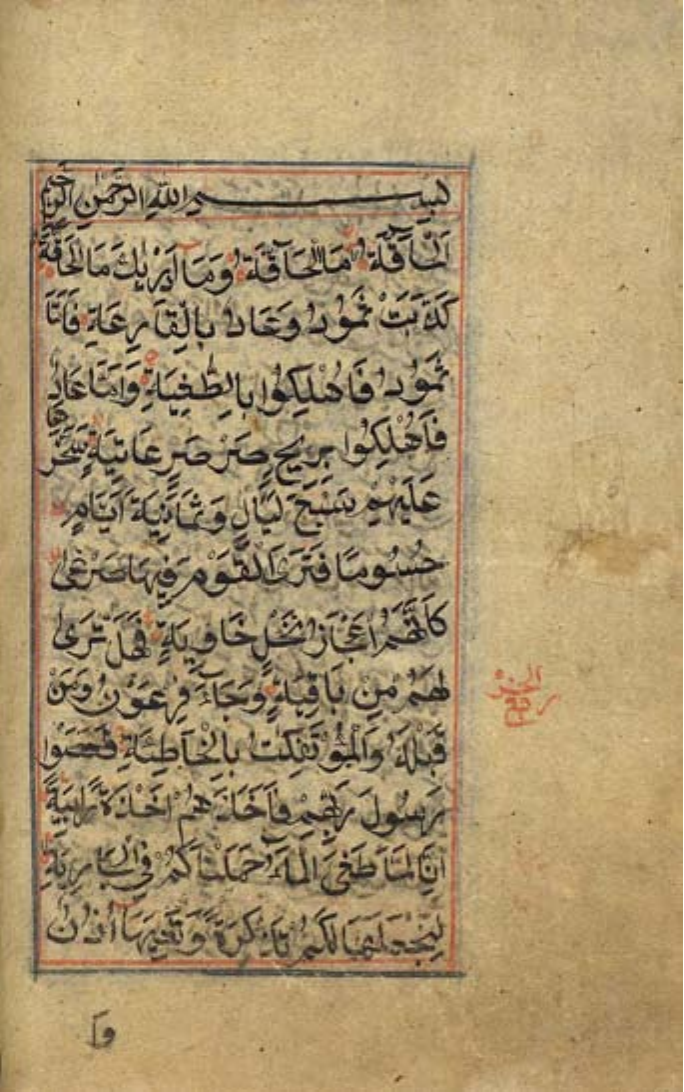 بسم الله الرحمن الرحيم
الحاقة ما الحاقة وما ادريك ما الحاقة
كذبت ثمود وعاد بالقارعة فاما
ثمود فاهلكوا بالطغية واما عاد
فاهلكوا بريح صرصر عاتية سخرها
عليهم سبع ليال وثمانية ايام
حسوما فترى القوم فيها صرعى
كانهم اعجاز نخل خاوية فهل ترى
لهم من باقية وجاء فرعون ومن
قبله والمؤتفكت بالخاطئة فعصوا
رسول ربهم فاخذهم اخذة رابية
انا لما طغى الماء حملناكم في الجارية
لنجعلها لكم تذكرة وتعيها اذن
وا